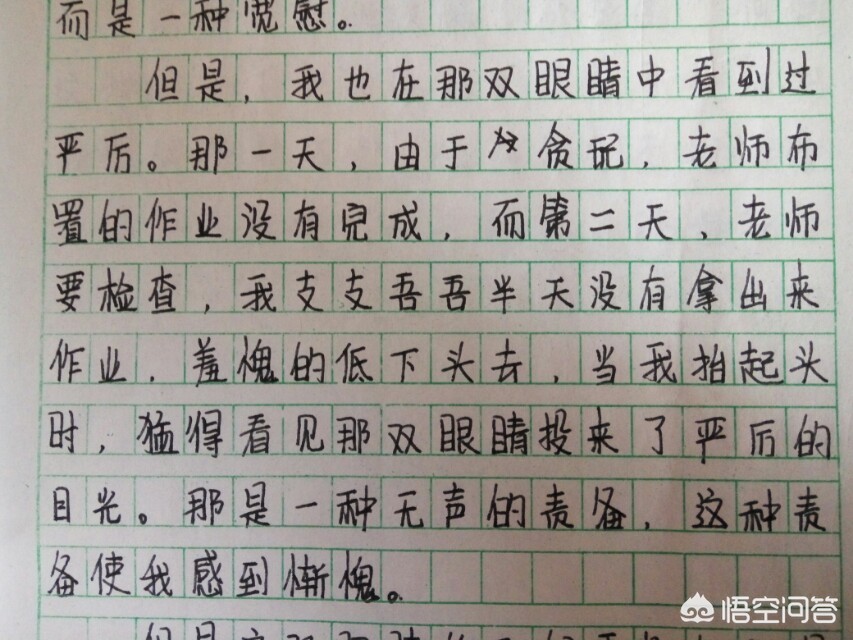 而是一种宽慰。
但是，我也在那双眼睛中看到过
严厉。那一天，由于贪玩，老师布
置的作业没有完成，而第二天，老师
要检查，我支支吾吾半天没有拿出来
作业．羞愧的低下头去，当我抬起头
时，猛得看见那双眼睛投来了严厉的
目光。那是一种无声的责备，这种责
备使我感到惭愧。
但是
悟空问答